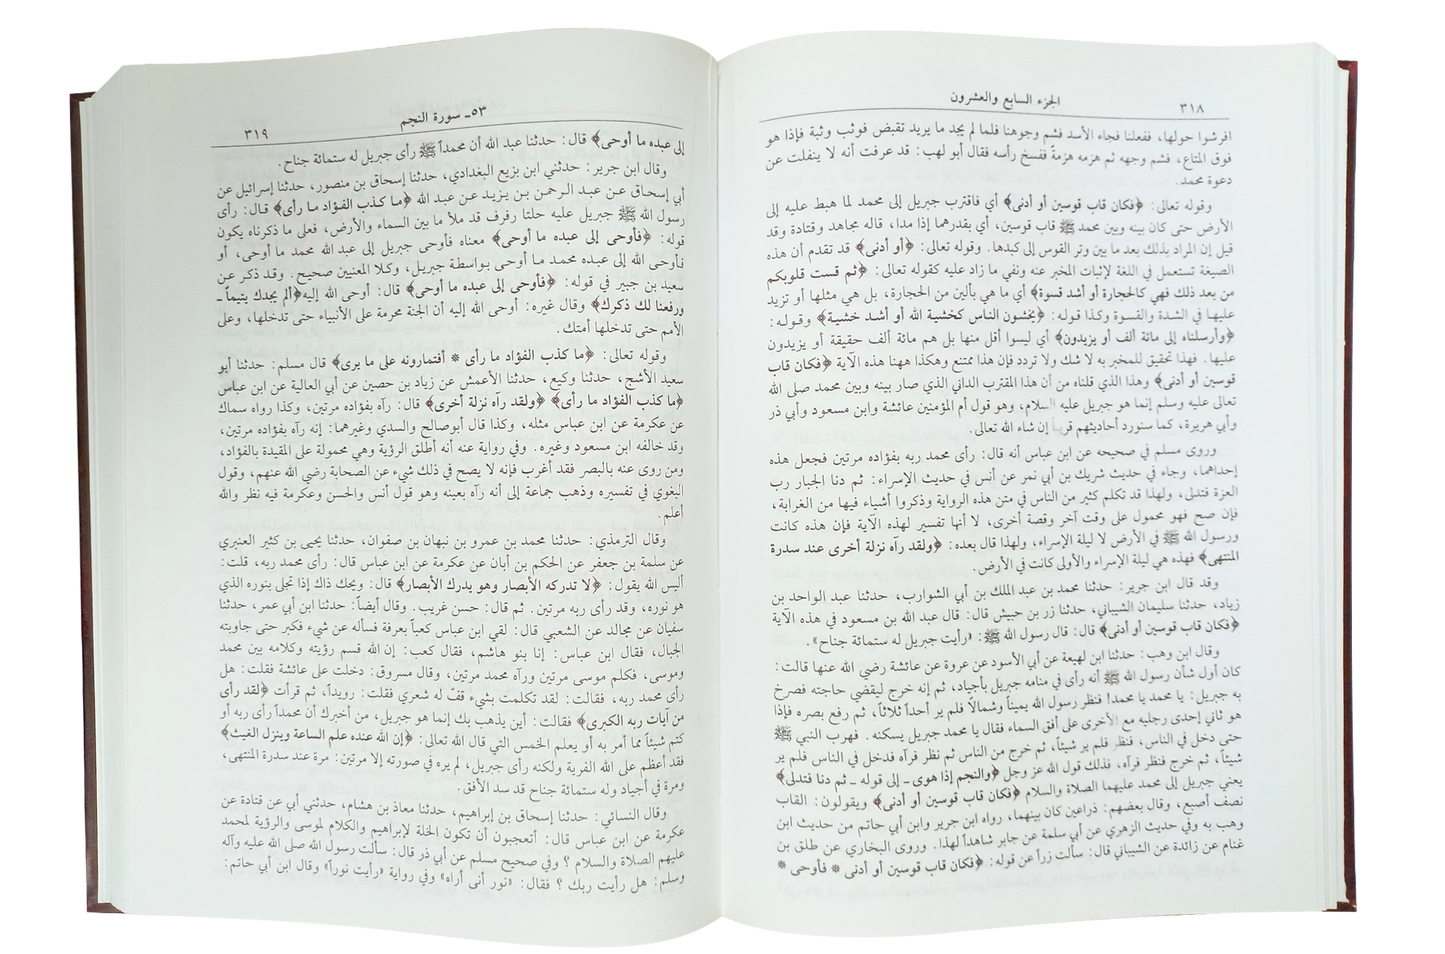 ٣١٨
الجزء السابع والعشرون
افرشوا حولها، ففعلنا فجاء الأسد فشم وجوهنا فلما لم يجد ما يريد تقبض فوثب وثبة فإذا هو
فوق المتاع، فشم وجهه ثم هزمه هزمةً ففسخ رأسه فقال أبو لهب: قد عرفت أنه لا ينفلت عن
دعوة محمد.
وقوله تعالى: ﴿فكان قاب قوسين أو أدنى﴾ أي فاقترب جبريل إلى محمد لما هبط عليه إلى
الأرض حتى كان بينه وبين محمد ﷺ قاب قوسين، أي بقدرهما إذا مدا، قاله مجاهد وقتادة وقد
قيل إن المراد بذلك بعد ما بين وتر القوس إلى كبدها. وقوله تعالى: ﴿أو أدنى﴾ قد تقدم أن هذه
الصيغة تستعمل في اللغة لإثبات المخبر عنه ونفي ما زاد عليه كقوله تعالى: ﴿ثم قست قلوبكم
من بعد ذلك فهي كالحجارة أو أشد قسوة﴾ أي ما هي بألين من الحجارة، بل هي مثلها أو تزيد
عليها في الشدة والقسوة وكذا قوله: ﴿يخشون الناس كخشية الله أو أشد خشية﴾ وقوله:
﴿وأرسلناه إلى مائة ألف أو يزيدون﴾ أي ليسوا أقل منها بل هم مائة ألف حقيقة أو يزيدون
عليها. فهذا تحقيق للمخبر به لا شك ولا تردد فإن هذا ممتنع وهكذا ههنا هذه الآية ﴿فكان قاب
قوسين أو أدنى﴾ وهذا الذي قلناه من أن هذا المقترب الداني الذي صار بينه وبين محمد صلى الله
تعالى عليه وسلم إنما هو جبريل عليه السلام، وهو قول أم المؤمنين عائشة وابن مسعود وأبي ذر
وأبي هريرة، كما سنورد أحاديثهم قريباً إن شاء الله تعالى.
وروى مسلم في صحيحه عن ابن عباس أنه قال: رأى محمد ربه بفؤاده مرتين فجعل هذه
إحداهما، وجاء في حديث شريك بن أبي نمر عن أنس في حديث الإسراء: ثم دنا الجبار رب
العزة فتدلى، ولهذا قد تكلم كثير من الناس في متن هذه الرواية وذكروا أشياء فيها من الغرابة،
فإن صح فهو محمول على وقت آخر وقصة أخرى، لا أنها تفسير لهذه الآية فإن هذه كانت
ورسول الله ﷺ في الأرض لا ليلة الإسراء، ولهذا قال بعده: ﴿ولقد رآه نزلة أخرى عند سدرة
المنتهى﴾ فهذه هي ليلة الإسراء والأولى كانت في الأرض.
وقد قال ابن جرير: حدثنا محمد بن عبد الملك بن أبي الشوارب، حدثنا عبد الواحد بن
زياد، حدثنا سليمان الشيباني، حدثنا زر بن حبيش قال: قال عبد الله بن مسعود في هذه الآية
﴿فكان قاب قوسين أو أدنى﴾ قال: قال رسول الله ﷺ: «رأيت جبريل له ستمائة جناح».
وقال ابن وهب: حدثنا ابن لهيعة عن أبي الأسود عن عروة عن عائشة رضي الله عنها قالت:
كان أول شأن رسول الله ﷺ أنه رأى في منامه جبريل بأجياد، ثم إنه خرج ليقضي حاجته فصرخ
به جبريل: يا محمد يا محمد! فنظر رسول الله يميناً وشمالًا فلم ير أحداً ثلاثاً، ثم رفع بصره فإذا
هو ثاني إحدى رجليه مع الأخرى على أفق السماء فقال يا محمد جبريل يسكنه. فهرب النبي ﷺ
حتى دخل في الناس، فنظر فلم ير شيئاً، ثم خرج من الناس ثم نظر فرآه فدخل في الناس فلم ير
شيئاً، ثم خرج فنظر فرآه، فذلك قول الله عز وجل ﴿والنجم إذا هوى ـ إلى قوله ـ ثم دنا فتدلى﴾
يعني جبريل إلى محمد عليهما الصلاة والسلام ﴿فكان قاب قوسين أو أدنى﴾ ويقولون: القاب
نصف أصبع، وقال بعضهم: ذراعين كان بينهما، رواه ابن جرير وابن أبي حاتم من حديث ابن
وهب به وفي حديث الزهري عن أبي سلمة عن جابر شاهداً لهذا. وروى البخاري عن طلق بن
غنام عن زائدة عن الشيباني قال: سألت زراً عن قوله: ﴿فكان قاب قوسين أو أدنى * فأوحى *
٥٣ـ سورة النجم
٣١٩
إلى عبده ما أوحى﴾ قال: حدثنا عبد الله أن محمداً ﷺ رأى جبريل له ستمائة جناح.
وقال ابن جرير: حدثني ابن بزيع البغدادي، حدثنا إسحاق بن منصور، حدثنا إسرائيل عن
أبي إسحاق عن عبد الرحمن بن يزيد عن عبد الله ﴿ما كذب الفؤاد ما رأى﴾ قال: رأى
رسول الله ﷺ جبريل عليه حلتا رفرف قد ملأ ما بين السماء والأرض، فعلى ما ذكرناه يكون
قوله: ﴿فأوحى إلى عبده ما أوحى﴾ معناه فأوحى جبريل إلى عبد الله محمد ما أوحى، أو
فأوحى الله إلى عبده محمد ما أوحى بواسطة جبريل، وكلا المعنيين صحيح. وقد ذكر عن
سعيد بن جبير في قوله: ﴿فأوحى إلى عبده ما أوحى﴾ قال: أوحى الله إليه ﴿ألم يجدك يتيماً ـ
ورفعنا لك ذكرك﴾ وقال غيره: أوحى الله إليه أن الجنة محرمة على الأنبياء حتى تدخلها، وعلى
الأمم حتى تدخلها أمتك.
وقوله تعالى: ﴿ما كذب الفؤاد ما رأى * أفتمارونه على ما يرى﴾ قال مسلم: حدثنا أبو
سعيد الأشج، حدثنا وكيع، حدثنا الأعمش عن زياد بن حصين عن أبي العالية عن ابن عباس
﴿ما كذب الفؤاد ما رأى﴾ ﴿ولقد رآه نزلة أخرى﴾ قال: رآه بفؤاده مرتين، وكذا رواه سماك
عن عكرمة عن ابن عباس مثله، وكذا قال أبوصالح والسدي وغيرهما: إنه رآه بفؤاده مرتين،
وقد خالفه ابن مسعود وغيره. وفي رواية عنه أنه أطلق الرؤية وهي محمولة على المقيدة بالفؤاد،
ومن روى عنه بالبصر فقد أغرب فإنه لا يصح في ذلك شيء عن الصحابة رضي الله عنهم، وقول
البغوي في تفسيره وذهب جماعة إلى أنه رآه بعينه وهو قول أنس والحسن وعكرمة فيه نظر والله
أعلم.
وقال الترمذي: حدثنا محمد بن عمرو بن نبهان بن صفوان، حدثنا يحيى بن كثير العنبري
عن سلمة بن جعفر عن الحكم بن أبان عن عكرمة عن ابن عباس قال: رأى محمد ربه، قلت:
أليس الله يقول: ﴿لا تدركه الأبصار وهو يدرك الأبصار﴾ قال: ويحك ذاك إذا تجلى بنوره الذي
هو نوره، وقد رأى ربه مرتين. ثم قال: حسن غريب. وقال أيضاً: حدثنا ابن أبي عمر، حدثنا
سفيان عن مجالد عن الشعبي قال: لقي ابن عباس كعباً بعرفة فسأله عن شيء فكبر حتى جاوبته
الجبال، فقال ابن عباس: إنا بنو هاشم، فقال كعب: إن الله قسم رؤيته وكلامه بين محمد
وموسى، فكلم موسى مرتين ورآه محمد مرتين، وقال مسروق: دخلت على عائشة فقلت: هل
رأى محمد ربه، فقالت: لقد تكلمت بشيء قفّ له شعري فقلت: رويداً، ثم قرأت ﴿لقد رأى
من آيات ربه الكبرى﴾ فقالت: أين يذهب بك إنما هو جبريل، من أخبرك أن محمداً رأى ربه أو
كتم شيئاً مما أمر به أو يعلم الخمس التي قال الله تعالى: ﴿إن الله عنده علم الساعة وينزل الغيث﴾
فقد أعظم على الله الفرية ولكنه رأى جبريل، لم يره في صورته إلا مرتين: مرة عند سدرة المنتهى،
ومرة في أجياد وله ستمائة جناح قد سد الأفق.
وقال النسائي: حدثنا إسحاق بن إبراهيم، حدثنا معاذ بن هشام، حدثني أبي عن قتادة عن
عكرمة عن ابن عباس قال: أتعجبون أن تكون الخلة لإبراهيم والكلام لموسى والرؤية لمحمد
عليهم الصلاة والسلام ؟ وفي صحيح مسلم عن أبي ذر قال: سألت رسول الله صلى الله عليه وآله
وسلم: هل رأيت ربك ؟ فقال: «نور أنى أراه» وفي رواية «رأيت نوراً» وقال ابن أبي حاتم: